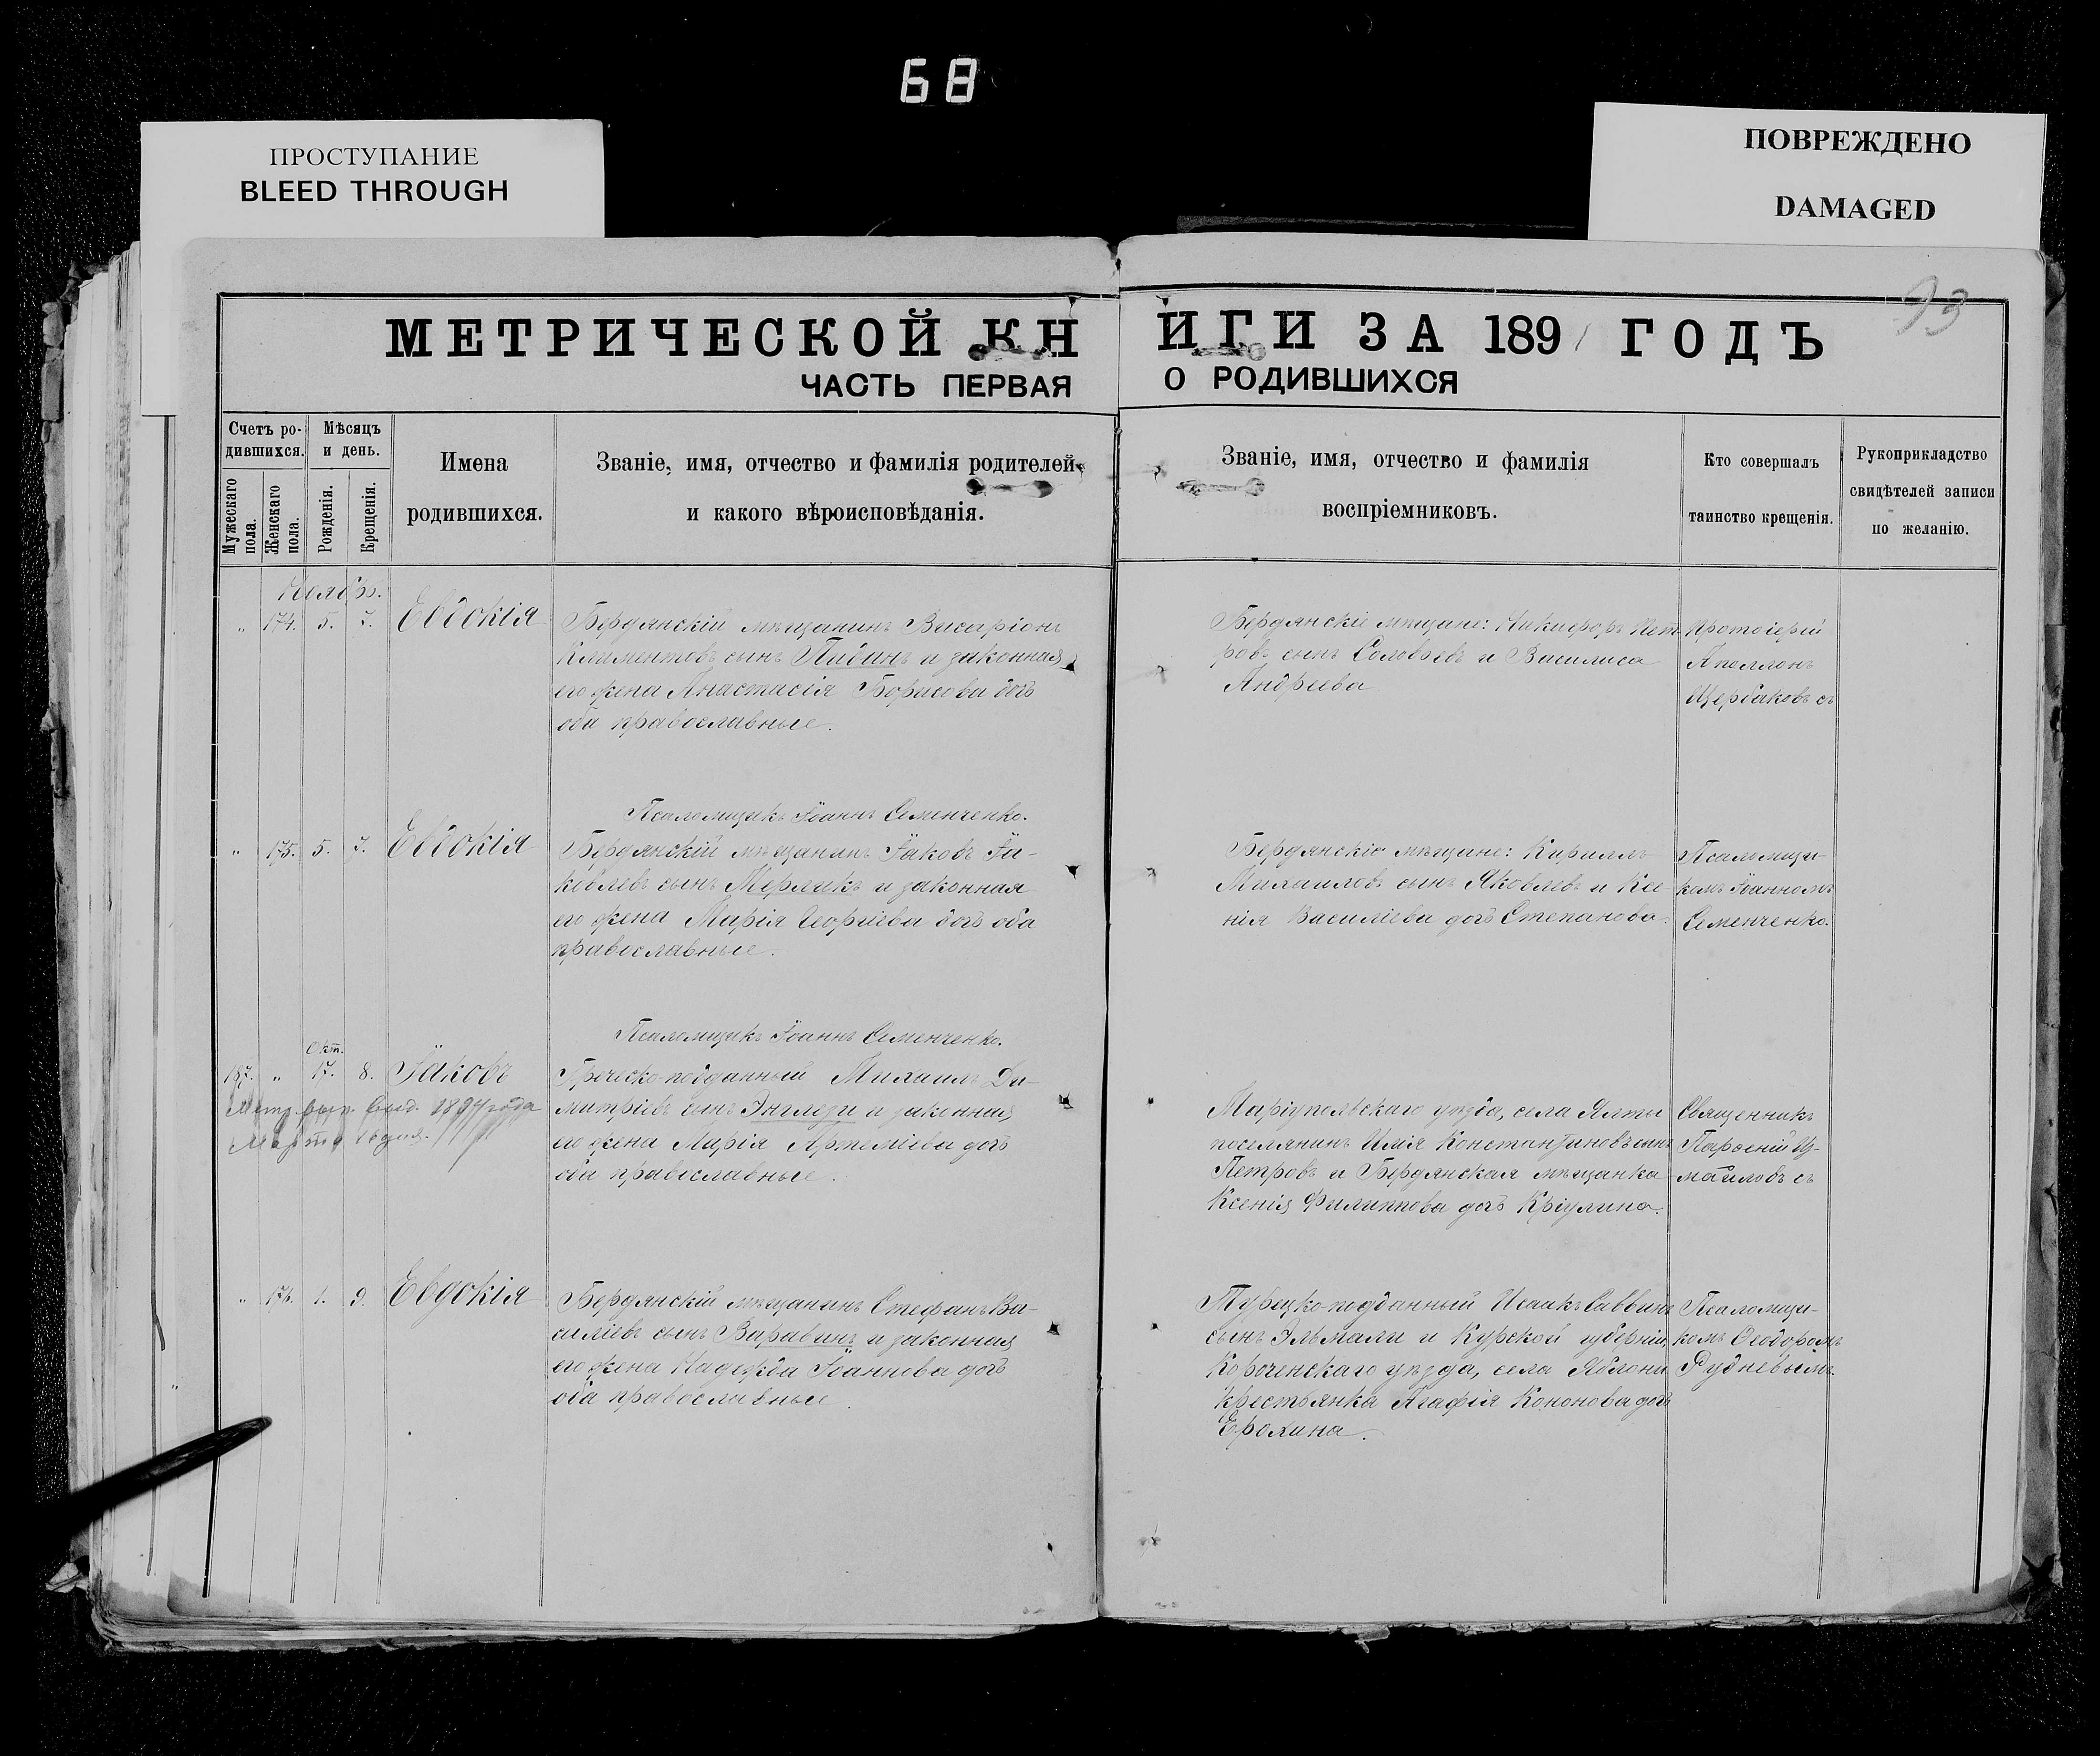 68
ПРОСТУПАНИЕ
BLEED THROUGH
ПОВРЕЖДЕНО
DAMAGED
93
МЕТРИЧЕСКОЙ КНИГИ ЗА 1891 ГОДЪ
ЧАСТЬ ПЕРВАЯ О РОДИВШИХСЯ
Счетъ ро-
дившихся.
Мужескаго
пола.
Женскаго
пола.
Мѣсяцъ
и день.
Рожденія.
Крещенія.
Имена
родившихся.
Званіе, имя, отчество и фамилія родителей,
и какого вѣроисповѣданія.
Званіе, имя, отчество и фамилія
воспріемниковъ.
Кто совершалъ
таинство крещенія.
Рукоприкладство
свидѣтелей записи
по желанію.
Ноябрь.
„ 174. 5. 7. Евдокія
Бердянскій мѣщанинъ Висаріонъ
Климентовъ сынъ и законная
его жена Анастасія Борисова дочь
оба православные.
Бердянскіе мѣщане: Никифоръ Пет-
ровъ сынъ Соловьевъ и Василиса
Андреева
Протоіерей
Аполлонъ
Щербаковъ съ
Псаломщикъ Іоаннъ Семенченко.
„ 175. 5. 7. Евдокія
Бердянскій мѣщанинъ Іаковъ Іа-
ковлевъ сынъ Мерликъ и законная
его жена Марія Георгіева дочь оба
православные.
Бердянскіе мѣщане: Кириллъ
Михаиловъ сынъ Яковлевъ и Ксе-
нія Василіева дочь Степанова.
Псаломщи-
комъ Іоанномъ
Семенченко.
Псаломщикъ Іоаннъ Семенченко.
Окт.
187. „ 17. 8. Іаковъ
выд. 1894 года
Марта
Греческо-подданный Михаилъ Ди-
митріевъ сынъ Энглези и законная
его жена Марія Артеміева дочь
оба православные.
Маріупольскаго уѣзда, села Ялты
поселянинъ Илія Константиновъ сынъ
Петровъ и Бердянская мѣщанка
Ксенія Филиппова дочь Кріулина.
Священникъ
Парѳеній Из-
маиловъ съ
„ 176. 1. 9. Евдокія
Бердянскій мѣщанинъ Стефанъ Ва-
силіевъ сынъ Варавинъ и законная
его жена Надежда Іоаннова дочь
оба православные.
Турецко-подданный Исаакъ Саввинъ
сынъ Эльмали и Курской губерніи,
Короченскаго уѣзда, села Яблони
крестьянка Агафія Кононова дочь
Ерохина.
Псаломщи-
комъ Ѳеодоромъ
Рудневымъ.